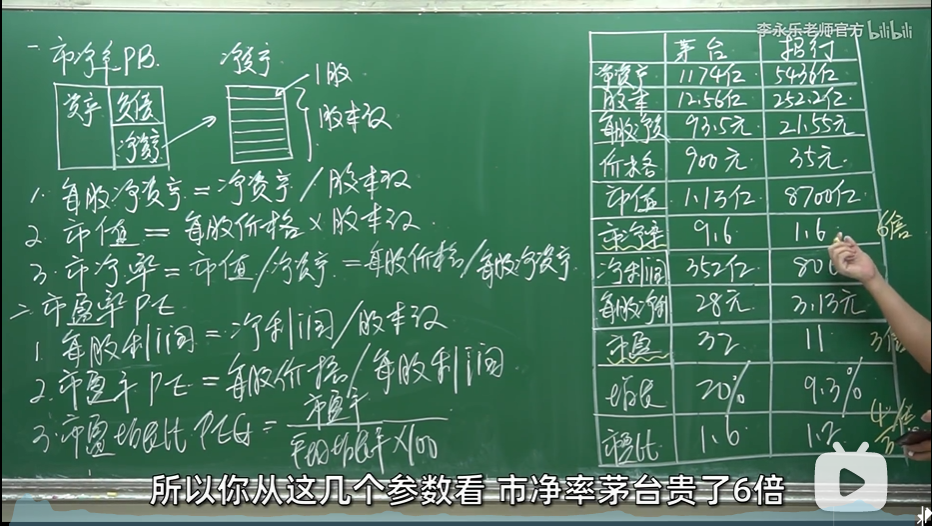 李永乐老师官方 bilibili
一 市净率PB.
净资产
1股
1股本数
资产 负债
净资产
1. 每股净资产 = 净资产 / 股本数
2. 市值 = 每股价格 × 股本数
3. 市净率 = 市值 / 净资产 = 每股价格 / 每股净资产
二 市盈率PE
1. 每股利润 = 净利润 / 股本数
2. 市盈率PE = 每股价格 / 每股利润
3. 市盈增长比 PEG = 市盈率 / 平均增长率×100
茅台 招行
净资产 1174亿 5436亿
股本 12.56亿 252.2亿
每股净资 93.5元 21.55元
价格 900元 35元
市值 1.13亿 8700亿
市净率 9.6 1.6 6倍
净利润 352亿 80
每股净利 28元 3.13元
市盈 32 11 3倍
增长 20% 9.3%
1.6 1.2
所以你从这几个参数看 市净率茅台贵了6倍